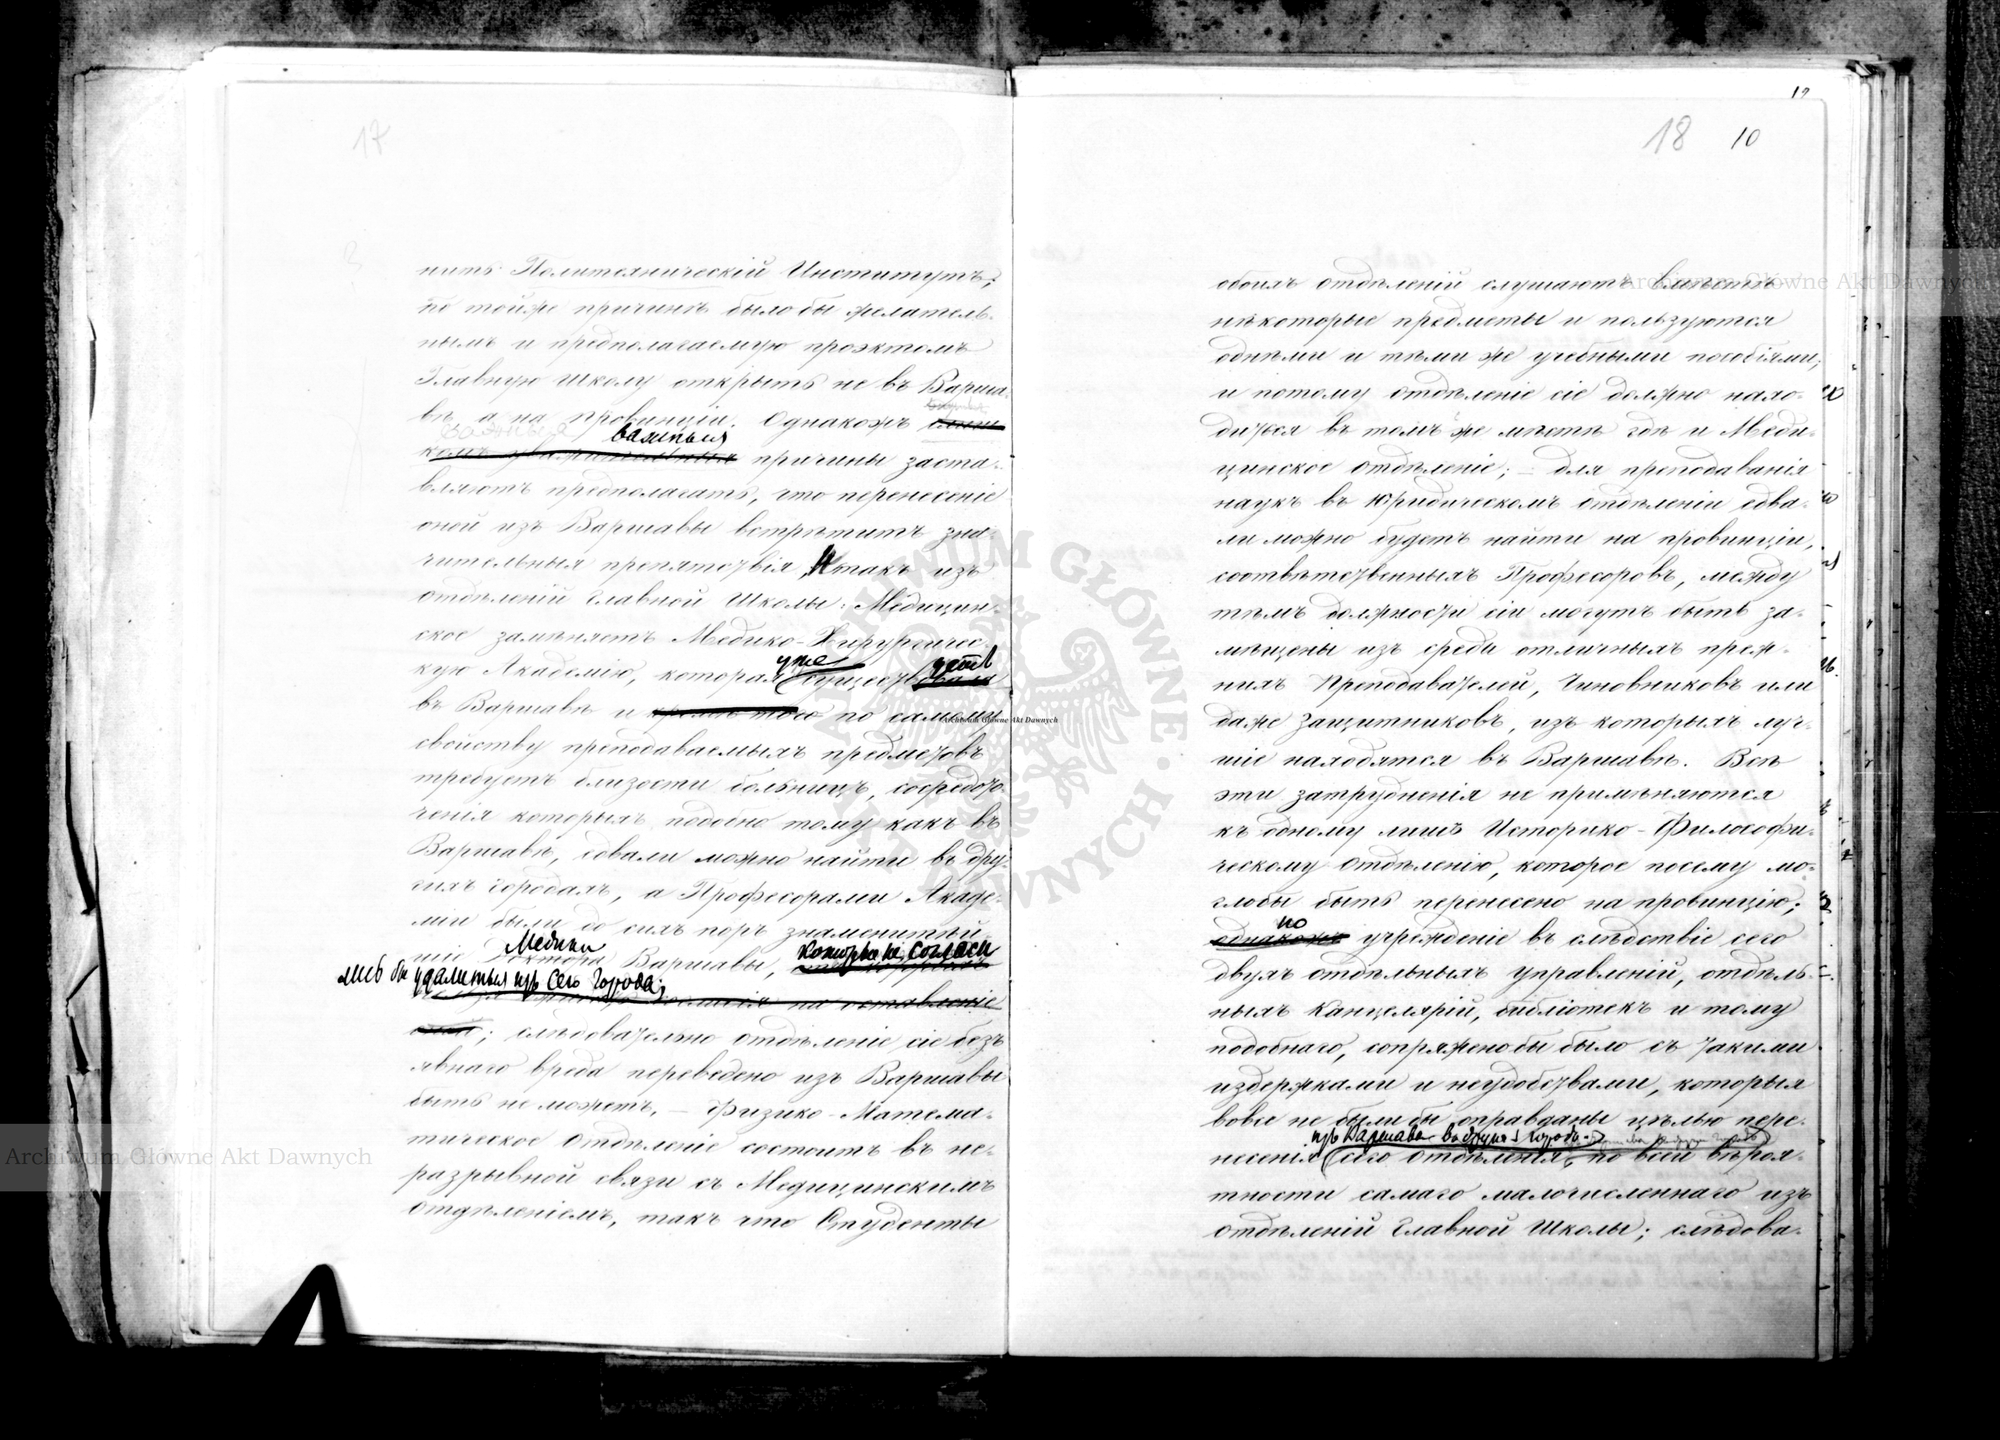 17
нить Политехническій Институтъ;
по тойже причинѣ было бы желатель-
нымъ и предполагаемую проэктомъ
Главную Школу открыть не въ Варша-
вѣ, а на провинціи. Однакожъ
важныя
причины заста-
вляютъ предполагать, что перенесеніе
оной изъ Варшавы встрѣтитъ зна-
чительныя препятствія. Итакъ изъ
отдѣленій Главной Школы: Медицин-
ское замѣняетъ Медико-Хирургичес-
кую Академію, которая уже существуетъ
въ Варшавѣ и кромѣ того по самому
свойству преподаваемыхъ предметовъ
требуетъ близости больницъ, сосредото-
ченія которыхъ подобно тому какъ въ
Варшавѣ, едвали можно найти въ дру-
гихъ городахъ, а Профессорами Акаде-
міи были до сихъ поръ знаменитѣй-
шіе Доктора Медики Варшавы, которые не согласи
лисъ бы удалиться изъ сего города;
на оставленіе
; слѣдовательно отдѣленіе сіе безъ
явнаго вреда переведено изъ Варшавы
быть не можетъ. — Физико-Матема-
тическое Отдѣленіе состоитъ въ не-
разрывной связи съ Медицинскимъ
Отдѣленіемъ, такъ что Студенты
18 10
обоихъ отдѣленій слушаютъ вмѣстѣ
нѣкоторые предметы и пользуются
однѣми и тѣми же учебными пособіями;
и потому отдѣленіе сіе должно нахо-
диться въ томъ же мѣстѣ гдѣ и Меди-
цинское отдѣленіе; — для преподаванія
наукъ въ Юридическомъ отдѣленіи едва-
ли можно будетъ найти на провинціи,
соотвѣтственныхъ Профессоровъ, между
тѣмъ должности сіи могутъ быть за-
мѣщены изъ среды отличныхъ преж-
нихъ Преподавателей, Чиновниковъ или
даже Защитниковъ, изъ которыхъ луч-
шіе находятся въ Варшавѣ. Всѣ
эти затрудненія не примѣняются
къ одному лишь Историко-Философи-
ческому Отдѣленію, которое посему мо-
глобы быть перенесено на провинцію;
но
однакожъ учрежденіе въ слѣдствіе сего
двухъ отдѣльныхъ управленій, отдѣль-
ныхъ Канцелярій, библіотекъ и тому
подобнаго, сопряжено бы было съ такими
издержками и неудобствами, которыя
вовсе не были бы оправданы цѣлью пере-
изъ Варшавы въ другіе города
несенія сего Отдѣленія, по всей вѣроя-
тности самаго малочисленнаго изъ
отдѣленій Главной Школы; слѣдова-
Archiwum Główne Akt Dawnych
Archiwum Główne Akt Dawnych
Archiwum Główne Akt Dawnych
ARCHIWUM GŁÓWNE AKT DAWNYCH